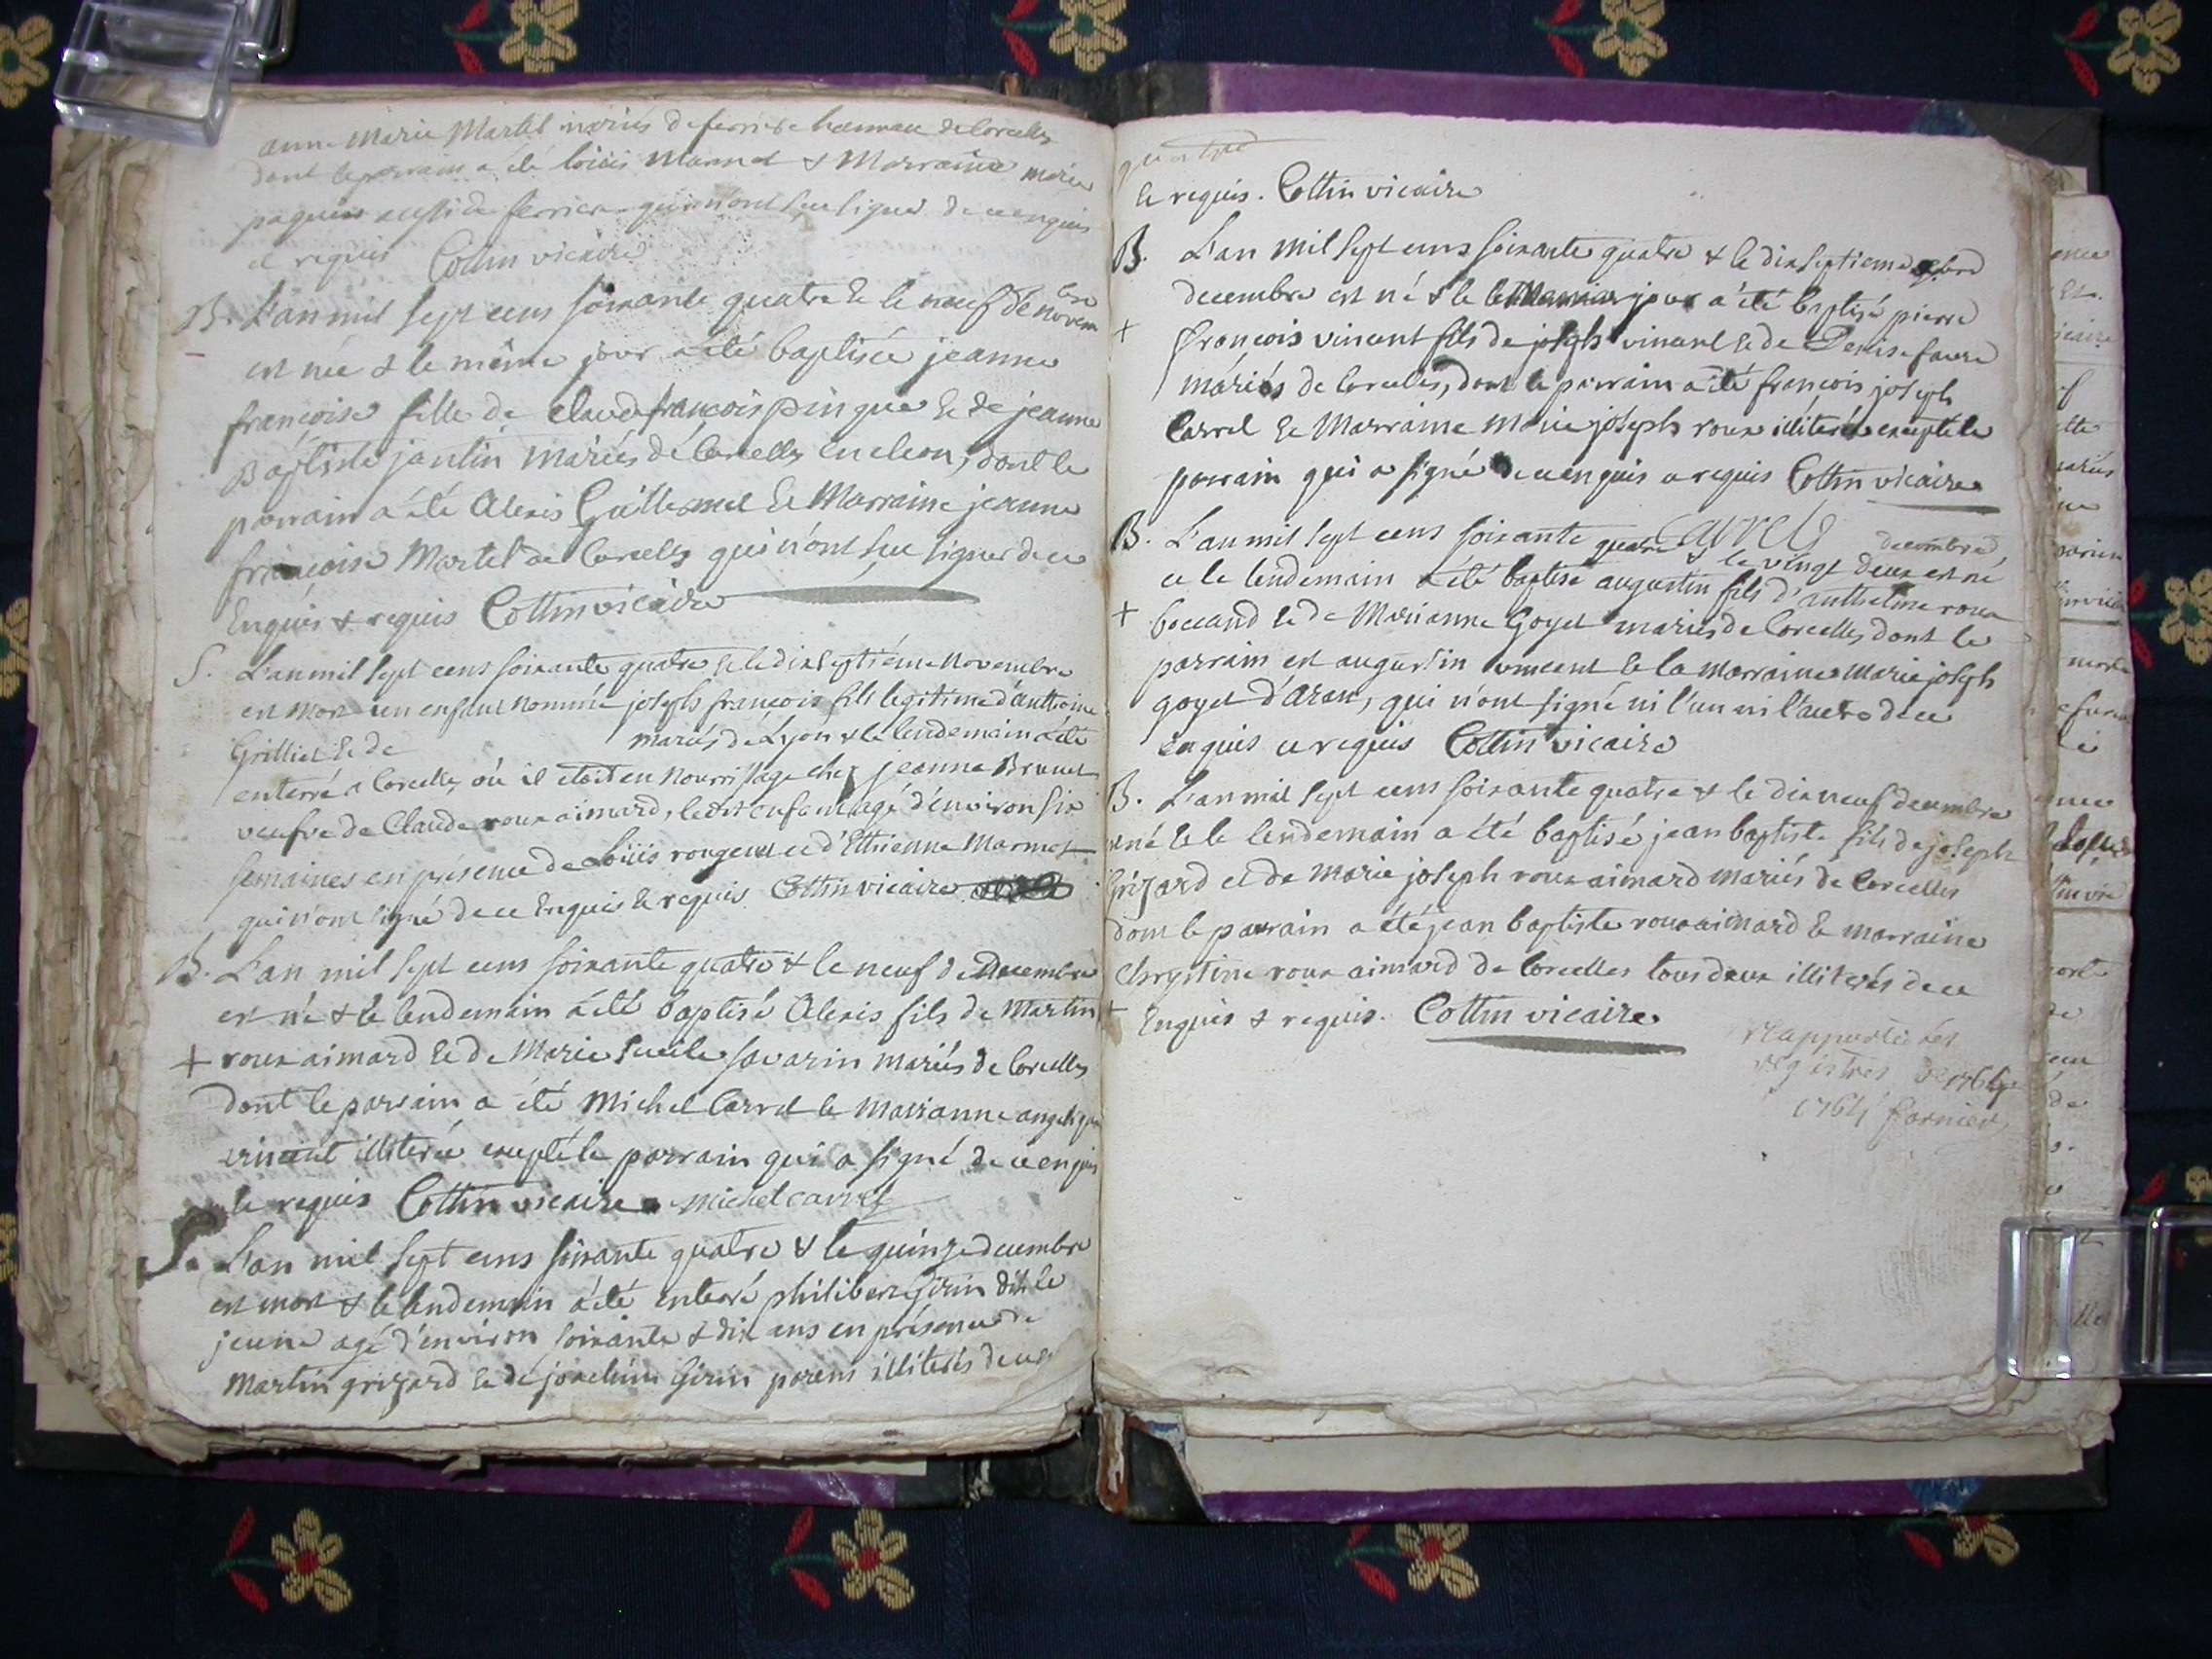 anne Marie Martel mariés de ferriere hameau de Corcelles
dont le parrain a été loüis Marmet & Marraine marie
paquier aussi de ferriere qui n'ont sçu signer de ce enquis
et requis Cottin vicaire
B. L'an mil sept cens soixante quatre & le neuf de novembre
est née & le même jour a été baptisée jeanne
françoise fille de claude françois pingue & de jeanne
Baptiste jantin mariés de Corcelles, dont le
parrain a été Alexis Guillermet & Marraine jeanne
françoise Martel de Corcelles qui n'ont sçu signer de ce
Enquis & requis Cottin vicaire
S. L'an mil sept cens soixante quatre & le dix septiéme Novembre
est mort un enfant nommé joseph françois fils legitime d'anthoine
Grilliet & de mariés de Lyon & le lendemain a été
enterré a Corcelles où il etoit en nourrissage chez jeanne Brunet
veufve de Claude roux aimard, ledit enfant agé d'environ six
semaines en présence de Loüis rougemt et d'Etthienne Marmet
qui n'ont signé de ce Enquis & requis Cottin vicaire
B. L'an mil sept cens soixante quatre & le neuf de Decembre
est né & le lendemain a été baptisé Alexis fils de Martin
+ roux aimard & de Marie savarin mariés de Corcelles
dont le parrain a été Michel Carrel & marianne angelique
vincent illiterée excepté le parrain qui a signé de ce enquis
& requis Cottin vicaire Michel carrel
S. L'an mil sept cens soixante quatre & le quinze decembre
est mort & le lendemain a été enterré philibert Girin dit le
jeune agé d'environ soixante & dix ans en présence de
Martin grizard & de joachim Girin parens illiterés de ce
& requis. Cottin vicaire
B. L'an mil sept cens soixante quatre & le dix septieme
decembre est né & le jour a été baptisé pierre
+ françois vincent fils de joseph vincent & de Denise favre
mariés de Corcelles, dont le parrain a été françois joseph
Carrel & Marraine Marie joseph roux illiterée excepté le
parrain qui a signé de ce enquis et requis Cottin vicaire
Carrel
B. L'an mil sept cens soixante quatre & le vingt deux decembre est né
et le lendemain a été baptisé augustin fils d'anthelme roux
+ boccand & de Marianne Goyet mariés de Corcelles dont le
parrain est augustin vincent & la marraine Marie joseph
goyet d'Aran, qui n'ont signé ni l'un ni l'autre de ce
enquis et requis Cottin vicaire
B. L'an mil sept cens soixante quatre & le dix neuf decembre
est né & le lendemain a été baptisé jean baptiste fils de joseph
Grizard et de Marie joseph roux aimard mariés de Corcelles
dont le parrain a été jean baptiste roux aimard & marraine
Chrystine roux aimard de Corcelles tous deux illiterés de ce
+ Enquis & requis. Cottin vicaire
rapporté les
registres de 1764
1764 fornier